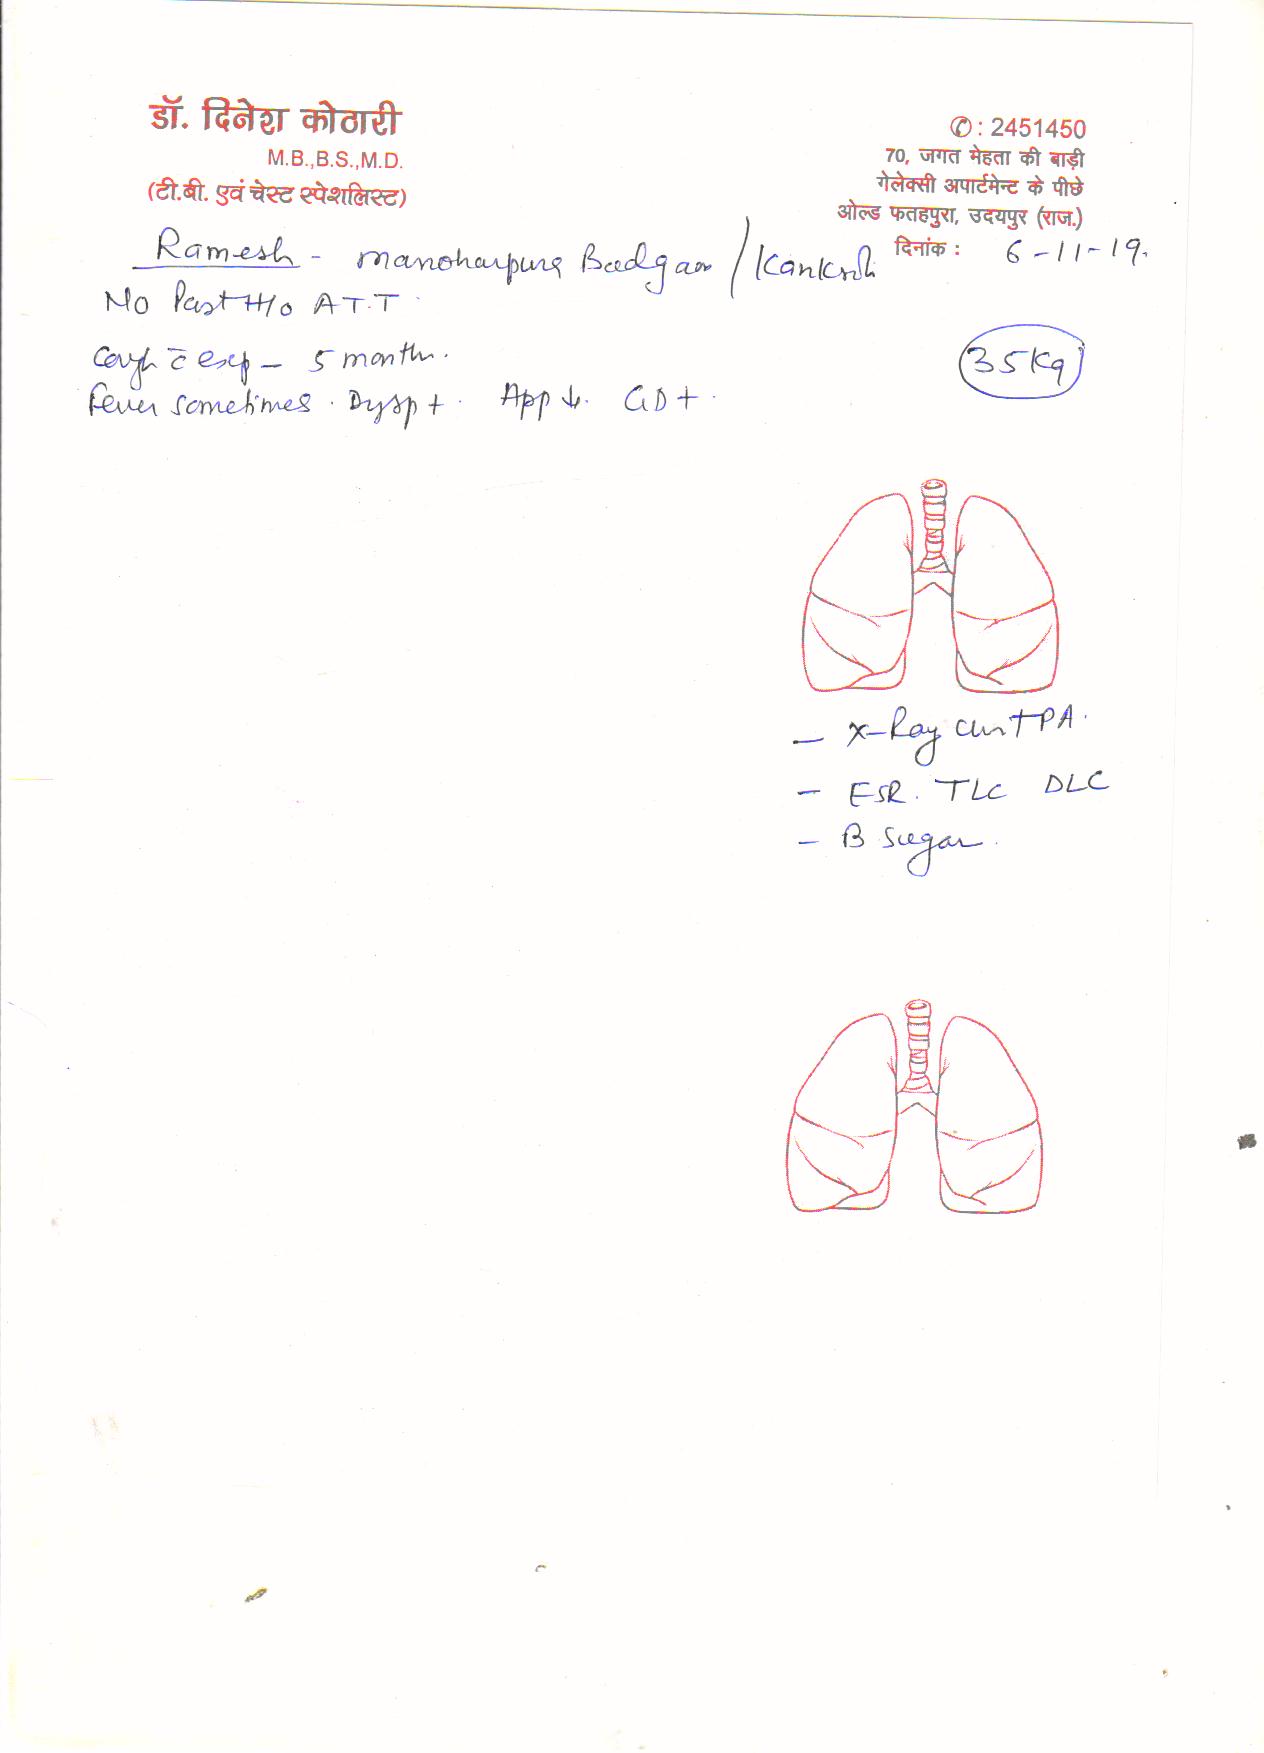 डॉ. दिनेश कोठारी
M.B.,B.S.,M.D.
(टी.बी. एवं चेस्ट स्पेशलिस्ट)
✆ : 2451450
70, जगत मेहता की बाड़ी
गेलेक्सी अपार्टमेन्ट के पीछे
ओल्ड फतहपुरा, उदयपुर (राज.)
दिनांक : 6-11-19.
Ramesh - manoharpura Badgaon /
No Past H/o A T.T
Cough c̄ exp - 5 month.
35 Kg
Fever sometimes. Dysp +. App ↓. GD +.
- X-Ray Chest PA.
- ESR. TLC DLC
- B Sugar.